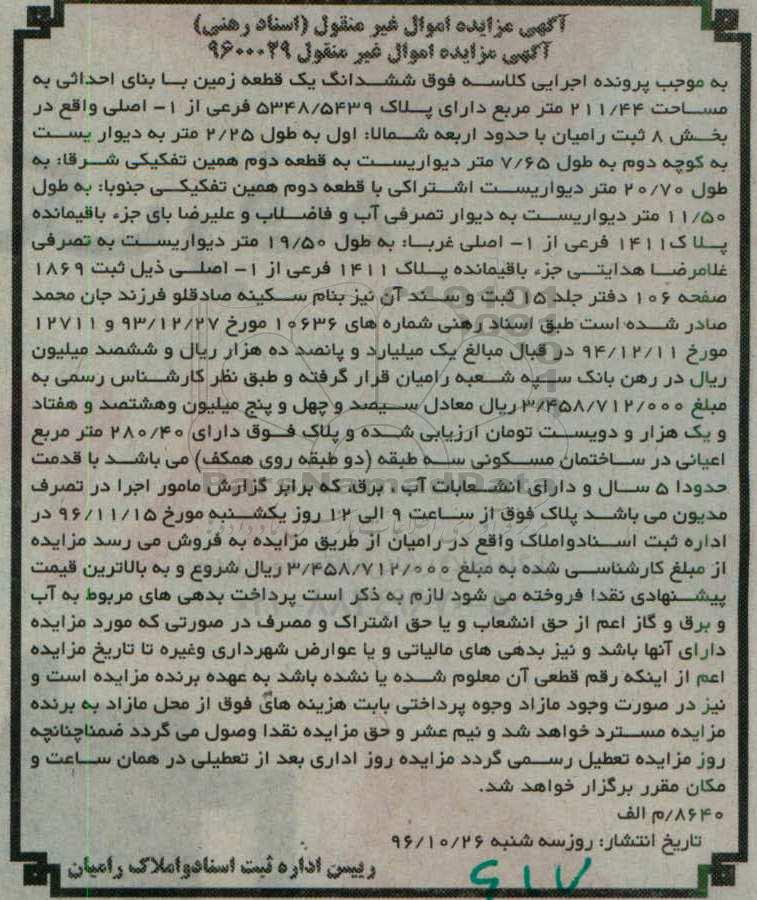 آگهی مزایده اموال غیر منقول (اسناد رهنی)
آگهی مزایده اموال غیر منقول ۹۶۰۰۰۲۹
به موجب پرونده اجرایی کلاسه فوق ششدانگ یک قطعه زمین با بنای احداثی به
مساحت ۲۱۱/۴۴ متر مربع دارای پلاک ۵۳۴۸/۵۴۳۹ فرعی از ۱- اصلی واقع در
بخش ۸ ثبت رامیان با حدود اربعه شمالا: اول به طول ۲/۲۵ متر به دیوار یست
به کوچه دوم به طول ۷/۶۵ متر دیواریست به قطعه دوم همین تفکیکی شرقا: به
طول ۲۰/۷۰ متر دیواریست اشتراکی با قطعه دوم همین تفکیکی جنوبا: به طول
۱۱/۵۰ متر دیواریست به دیوار تصرفی آب و فاضلاب و علیرضا بای جزء باقیمانده
پلا ک۱۴۱۱ فرعی از ۱- اصلی غربا: به طول ۱۹/۵۰ متر دیواریست به تصرفی
غلامرضا هدایتی جزء باقیمانده پلاک ۱۴۱۱ فرعی از ۱- اصلی ذیل ثبت ۱۸۶۹
صفحه ۱۰۶ دفتر جلد ۱۵ ثبت و سند آن نیز بنام سکینه صادقلو فرزند جان محمد
صادر شده است طبق اسناد رهنی شماره های ۱۰۶۳۶ مورخ ۹۳/۱۲/۲۷ و ۱۲۷۱۱
مورخ ۹۴/۱۲/۱۱ در قبال مبالغ یک میلیارد و پانصد ده هزار ریال و ششصد میلیون
ریال در رهن بانک سپه شعبه رامیان قرار گرفته و طبق نظر کارشناس رسمی به
مبلغ ۳/۴۵۸/۷۱۲/۰۰۰ ریال معادل سیصد و چهل و پنج میلیون وهشتصد و هفتاد
و یک هزار و دویست تومان ارزیابی شده و پلاک فوق دارای ۲۸۰/۴۰ متر مربع
اعیانی در ساختمان مسکونی سه طبقه (دو طبقه روی همکف) می باشد با قدمت
حدودا ۵ سال و دارای انشعابات آب ، برق، که برابر گزارش مامور اجرا در تصرف
مدیون می باشد پلاک فوق از ساعت ۹ الی ۱۲ روز یکشنبه مورخ ۹۶/۱۱/۱۵ در
اداره ثبت اسنادواملاک واقع در رامیان از طریق مزایده به فروش می رسد مزایده
از مبلغ کارشناسی شده به مبلغ ۳/۴۵۸/۷۱۲/۰۰۰ ریال شروع و به بالاترین قیمت
پیشنهادی نقدا فروخته می شود لازم به ذکر است پرداخت بدهی های مربوط به آب
و برق و گاز اعم از حق انشعاب و یا حق اشتراک و مصرف در صورتی که مورد مزایده
دارای آنها باشد و نیز بدهی های مالیاتی و یا عوارض شهرداری وغیره تا تاریخ مزایده
اعم از اینکه رقم قطعی آن معلوم شده یا نشده باشد به عهده برنده مزایده است و
نیز در صورت وجود مازاد وجوه پرداختی بابت هزینه های فوق از محل مازاد به برنده
مزایده مسترد خواهد شد و نیم عشر و حق مزایده نقدا وصول می گردد ضمناچنانچه
روز مزایده تعطیل رسمی گردد مزایده روز اداری بعد از تعطیلی در همان ساعت و
مکان مقرر برگزار خواهد شد.
۸۶۴۰/م الف
تاریخ انتشار: روزسه شنبه ۹۶/۱۰/۲۶
رییس اداره ثبت اسنادواملاک رامیان